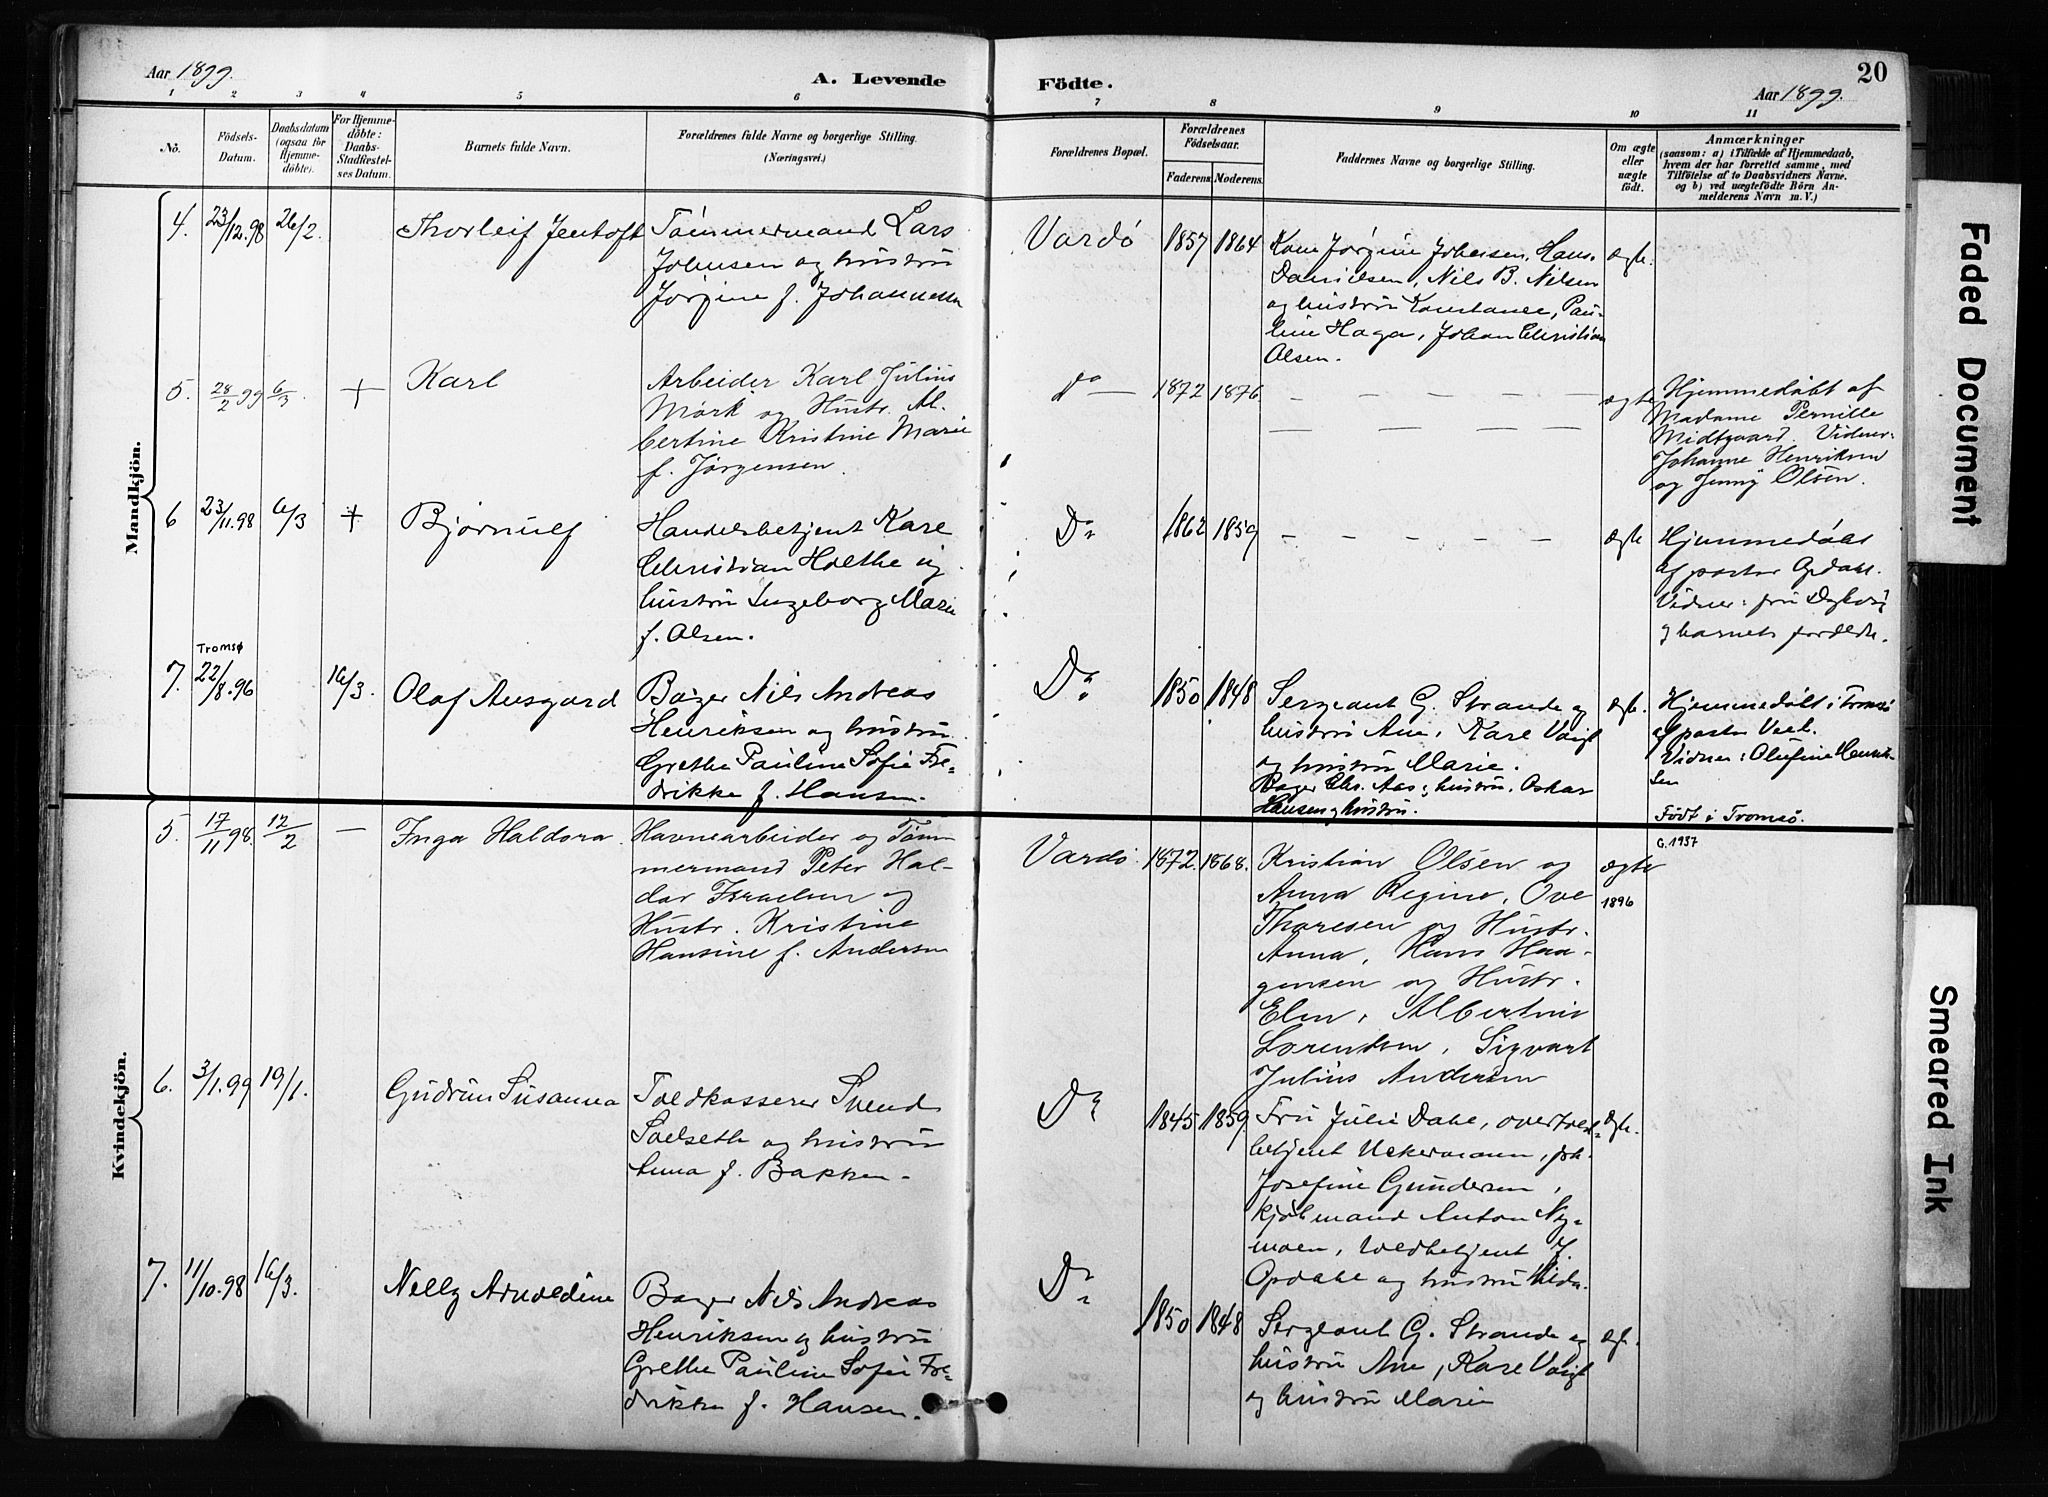 Aar 1899. A. Levende Fødte. Aar 1899. 20
1 2 3 4 5 6 7 8 9 10 11
No.
Fødsels-
Datum.
Daabsdatum
(ogsaa for
Hjemme-
døbte).
For Hjemme-
døbte:
Daabs-
Stadfæstel-
ses Datum.
Barnets fulde Navn.
Forældrenes fulde Navne og borgerlige Stilling.
(Næringsvei.)
Forældrenes Bopæl.
Forældrenes
Fødselsaar.
Faderens. Moderens.
Faddernes Navne og borgerlige Stilling.
Om ægte
eller
uægte
født.
Anmærkninger
(saasom: a) i Tilfælde af Hjemmedaab,
hvem der har forrettet samme, med
Tilføielse af to Daabsvidners Navne.
og b) ved uægtefødte Børn An-
melderens Navn m. V.)
Mandkjön.
4. 23/12.98 26/2. Thorleif Jentoft
Tømmermand Lars
Johnsen og hustru
Jørgine f. Johannesen
Vardø 1857 1864
Kone Jørgine Johnsen, Hans
Danielsen, Nils B. Nilsen
og hustru Konstance, Pau-
line Haga, Johan Christian
Olsen.
ægte.
5. 28/2 99 6/3. + Karl
Arbeider Karl Julius
Mørk og Hustr. Al-
bertine Kristine Marie
f. Jørgensen.
Do — 1872 1876 — — — — — —
— — — — —
ægte
Hjemmedøbt af
Madame Pernille
Midtgaard. Vidner:
Johanne Henriksen
og Jenny Olsen.
6 23/11.98 6/3 + Bjørnulf
Handelsbetjent Karl
Christian Holthe og
hustru Ingeborg Marie
f. Olsen.
Do 1862 1859 — — — — —
ægte
Hjemmedøbt
af pastor Opdahl.
Vidner: fru Dybvig
og barnets forældre.
7. Tromsø
22/8.96 16/3. Olaf Ausgard
Bager Nils Andreas
Henriksen og hustru
Grethe Pauline Sofie Fre-
drikke f. Hansen.
Do 1850 1848
Sergeant G. Strande og
hustru Ane, Karl Voigt
og hustru Marie.
Bager Chr. Aas og hustru, Oskar
Hansen og hustru.
ægte.
Hjemmedøbt i Tromsø
af pastor
Vidner: Olufine Henrik-
sen
Født i Tromsø.
G. 1937
Kvindekjön.
5. 17/11 98. 12/2 — Inga Haldora.
Havnearbeider og Tøm-
mermand Peter Hal-
dor Israelsen og
Hustr. Kristine
Hansine f. Andersen
Vardø 1872. 1868.
Kristian Olsen og
Anna Regine, Ove
Thoresen og Hustr.
Anna, Hans Haa-
gensen og Hustr.
Elen, Albertine
Lorentsen, Sigvart
Julius Andersen
ægte
1896
6. 3/1.99 19/1. Gudrun Susanna
Toldkasserer Svend
Solseth og hustru
Anna f. Bakken.
Do 1845 1859.
Fru Julie Dahl, overtold-
betjent Uckermann, frk.
Josefine Gundersen,
kjøbmand Anton Ny-
moen, toldbetjent J.
Opdahl og hustru Hilda.
ægte.
7. 11/10.98 16/3. Nelly Arnoldine
Bager Nils Andreas
Henriksen og hustru
Grethe Pauline Sofie Fre-
drikke f. Hansen.
Do 1850 1848
Sergeant G. Strande og
hustru Ane, Karl Voigt
og hustru Marie
ægte.
Faded Document
Smeared Ink